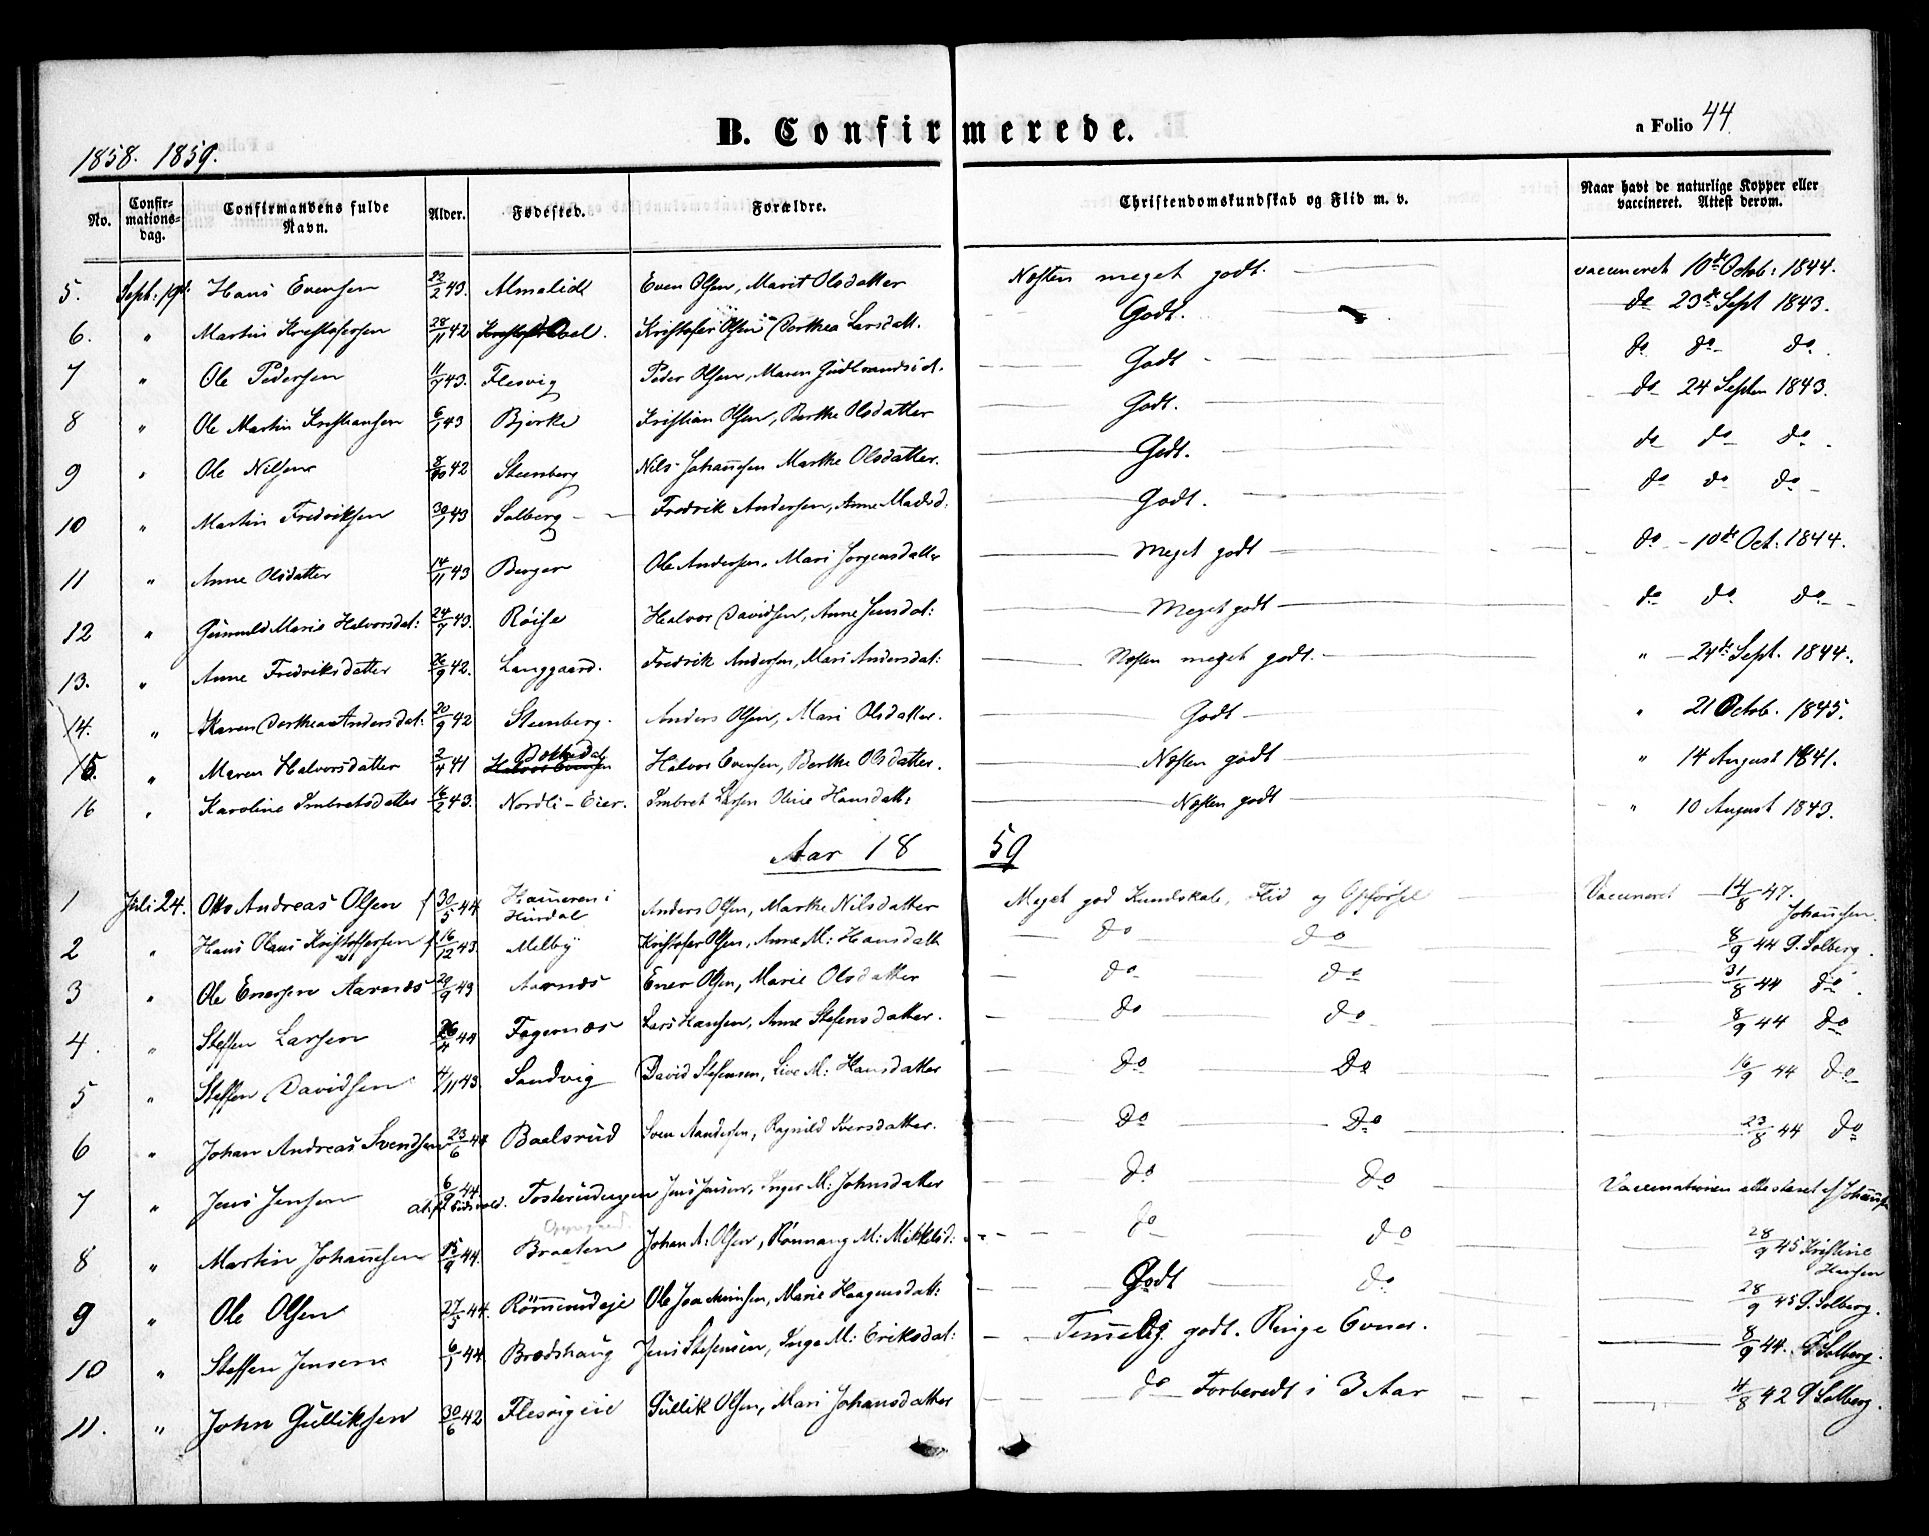 B. Confirmerede.
a Folio 44
1858. 1859.
No. Confirmationsdag. Confirmandens fulde Navn. Alder. Fødested. Forældre. Christendomskundskab og Flid m. v. Naar havt de naturlige Kopper eller vaccineret. Attest derom.
5. Sept: 19d. Hans Evensen 22/2 43. Almelid Even Olsen, Marit Olsdatter Næsten meget godt. vaccineret 10de Octob: 1844.
6. " Martin Kristofersen 28/11 42 Kristofer Olsen Dorthea Larsdatt. Godt. do 23de Sept 1843.
7 " Ole Pedersen 11/7 43. Flesvig Peder Olsen, Maren Gudbrandsd. Godt do do do.
8 " Ole Martin Kristiansen 6/1 43 Bjerke Kristian Olsen, Berthe Olsdatter Godt. do 24 Septen 1843.
9 " Ole Nilsen 8/10 42 Steenberg Nils Johannsen Marthe Olsdatter. Godt. do do do.
10 " Martin Fredriksen 30/1 43 Solberg Fredrik Andersen, Anne Madsd. Godt. do do do
11 " Anne Olsdatter 14/11 43 Berger Ole Andersen, Mari Jorgensdatter Meget godt do 10de Oct: 1844.
12 " Gunnild Marie Halvorsdat: 24/7 43. Røise Halvor Davidsen, Anne Jensdat: Meget godt do do do
13. " Anne Fredriksdatter 26/9 42. Langgaard. Fredrik Andersen, Mari Andersdat: Næsten meget godt. " 24de Sept. 1844.
14. " Karen Dorthea Andersdat: 20/9 42 Steenberg. Anders Olsen, Mari Olsdatter. Godt " 21 Octob. 1845.
15. " Maren Halvorsdatter 2/4 41 Halvor Evensen Halvor Evensen, Berthe Olsdatter. Næsten godt " 14 August 1841.
16 " Karoline Imbretsdatter 16/2 43. Nordli-Eier. Imbret Larsen Oline Hansdatt: Næsten godt " 10 August 1843.
Aar 1859
1 Juli 24. Otto Andreas Olsen f 30/5 44 Hameren i Hurdal Anders Olsen, Marthe Nilsdatter Meget god Kundskab, Flid og Opførsel Vaccineret 14/8 47. Johannsen.
2 " Hans Olaus Kristoffersen f 16/12 43. Melby Kristofer Olsen, Anne M: Hansdatt do do 8/9 44 P. Solberg.
3 " Ole Enersen Aarnæs 29/9 43 Aarnæs Ener Olsen, Marie Olsdatter do do 31/8 44 do.
4. " Steffen Larsen 26/4 44 Fagernæs Lars Hansen, Anne Stefensdatter. do do 8/9 44 do
5 " Steffen Davidsen 4/11 43 Sandvig David Stefensen, Live M: Hansdatter do do 16/9 44 do
6 " Johan Andreas Svendsen 23/6 44 Baalsrud Sven Aandersen, Ragnild Iversdatter. do do 23/8 44 do
7 " Jens Jensen 6/9 44. Eidsvold. Tosterudengen Jens Jensen, Inger M: Johnsdatter do do Vaccinationen attesteret af Johannsen
8 " Martin Johannsen 15/9 44. Braaten Johan A: Olsen, Rønnaug M: Mikkelsd: do do 28/9 45 Kristine Hansen
9 " Ole Olsen 27/5 44. Rømmerudeje Ole Joachimsen, Marie Haagensdatt: Godt do 28/9 45 P. Solberg.
10 " Steffen Jensen 6/1 44 Brædshaug Jens Stefensen, Inge M: Eriksdat: Temmelig godt. Ringe Evner. 8/9 44. P Solberg.
11. " John Gulliksen 30/6 42 Flesvigeie Gullik Olsen, Mari Johansdatter do Forberedt i 3 Aar 11/8 42 P Solberg.